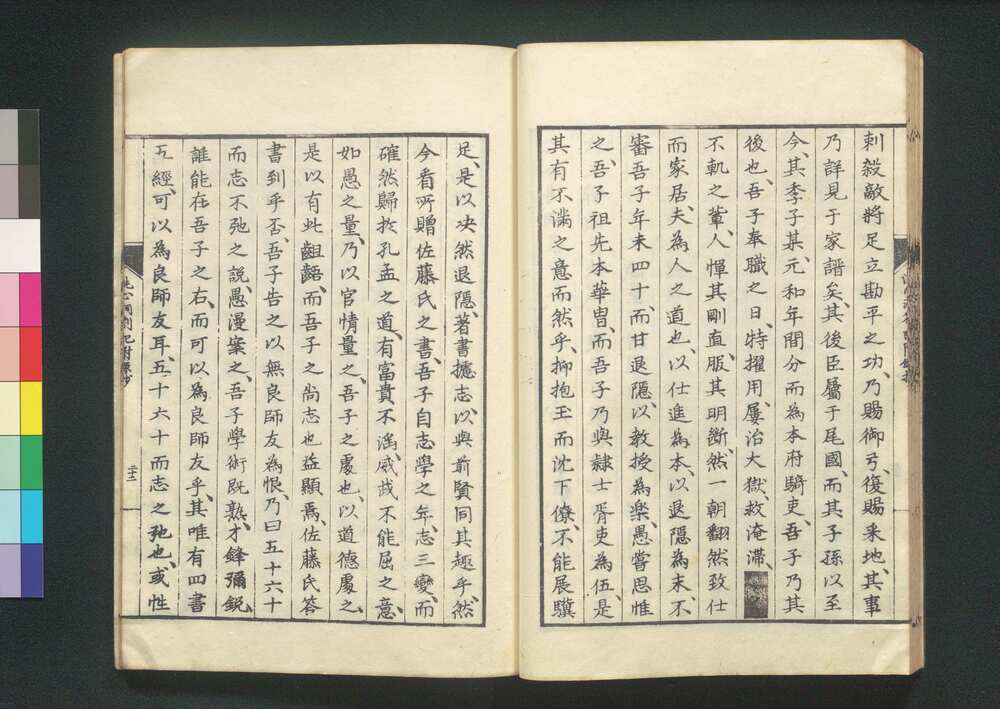 刺殺敵將足立勘平之功、乃賜御弓、復賜釆地、其事
乃詳見于家譜矣、其後臣屬于尾國、而其子孫以至
今、其季子某、元和年間分而為本府騎吏、吾子乃其
後也、吾子奉職之日、特擢用、屢治大獄、救淹滯、
不軌之輩、人憚其剛直、服其明斷、然一朝翻然致仕
而家居、夫為人之道也、以仕進為本、以退隱為末、不
審吾子年未四十、而甘退隱、以教授為樂、愚嘗思惟
之、吾子祖先本華胄、而吾子乃與隷士胥吏為伍、是
其有不滿之意而然乎、抑抱玉而沈下僚、不能展驥
足、是以决然退隱、著書攄志、以與前賢同其趣乎、然
今看所贈佐藤氏之書、吾子自志學之年、志三變、而
確然歸於孔孟之道、有富貴不淫、威武不能屈之意、
如愚之量、乃以官情量之、吾子之處也、以道德處之、
是以有此齟齬、而吾子之尚志也益顯焉、佐藤氏答
書到乎否、吾子告之以無良師友為恨、乃曰五十六十
而志不弛之說、愚漫案之、吾子學術既熟、才鋒彌銳、
誰能在吾子之右、而可以為良師友乎、其唯有四書
五經、可以為良師友耳、五十六十而志之弛也、或性
洗心洞劄記附錄抄
三十二